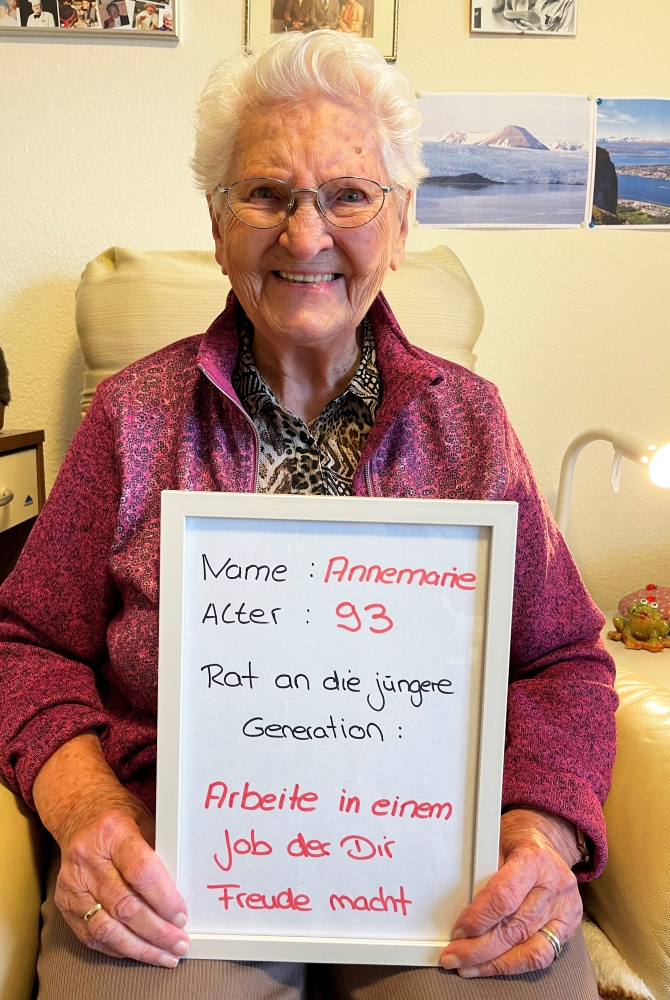 Name : Annemarie
Alter : 93
Rat an die jüngere
Generation :
Arbeite in einem
Job der Dir
Freude macht